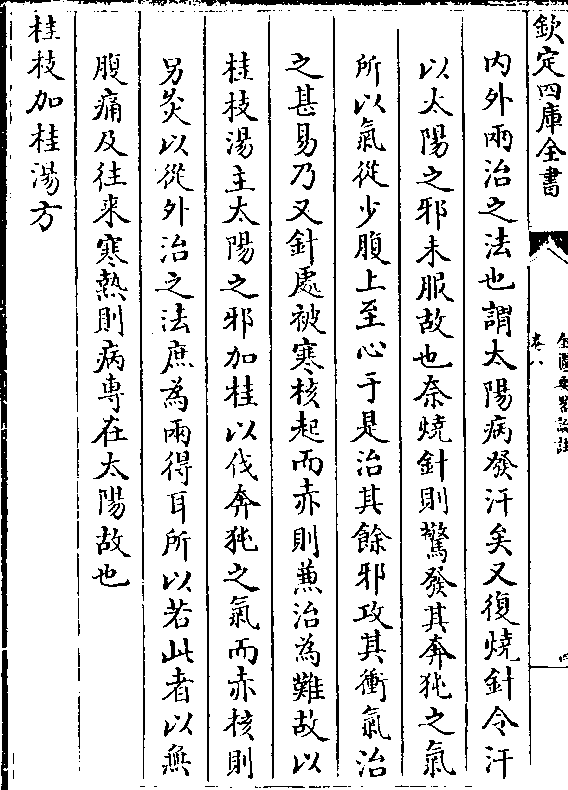 欽定四庫全書
金匱要略論註
卷八
四
内外兩治之法也謂太陽病發汗矣又復燒針令汗
以太陽之邪未服故也奈燒針則驚發其奔㹠之氣
所以氣從少腹上至心于是治其餘邪攻其衝氣治
之甚易乃又針處被寒核起而赤則兼治為難故以
桂枝湯主太陽之邪加桂以伐奔㹠之氣而赤核則
另灸以從外治之法庶為兩得耳所以若此者以無
腹痛及往来寒熱則病專在太陽故也
桂枝加桂湯方